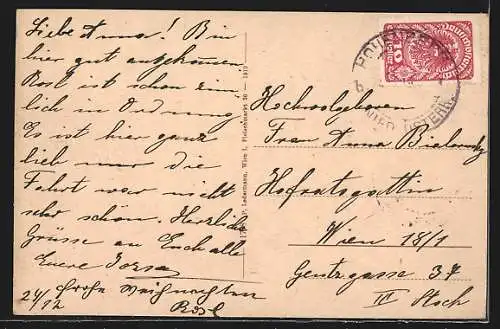 Liebe Anna! Bin
hier gut angekommen
Rosl ist schon ziem
lich in Ordnung
Es ist hier ganz
lieb nur die
Fahrt war nicht
sehr schön. Herzliche
Grüsse an Euch alle
Euere
Frohe Weihnachten
24/12 Rosl
P. Ledermann, Wien I., Fleischmarkt 20 — 1918
10
Hochwolgeboren
Frau Anna
Hofratsgattin
Wien 18/1
Gentzgasse 37
III Stock